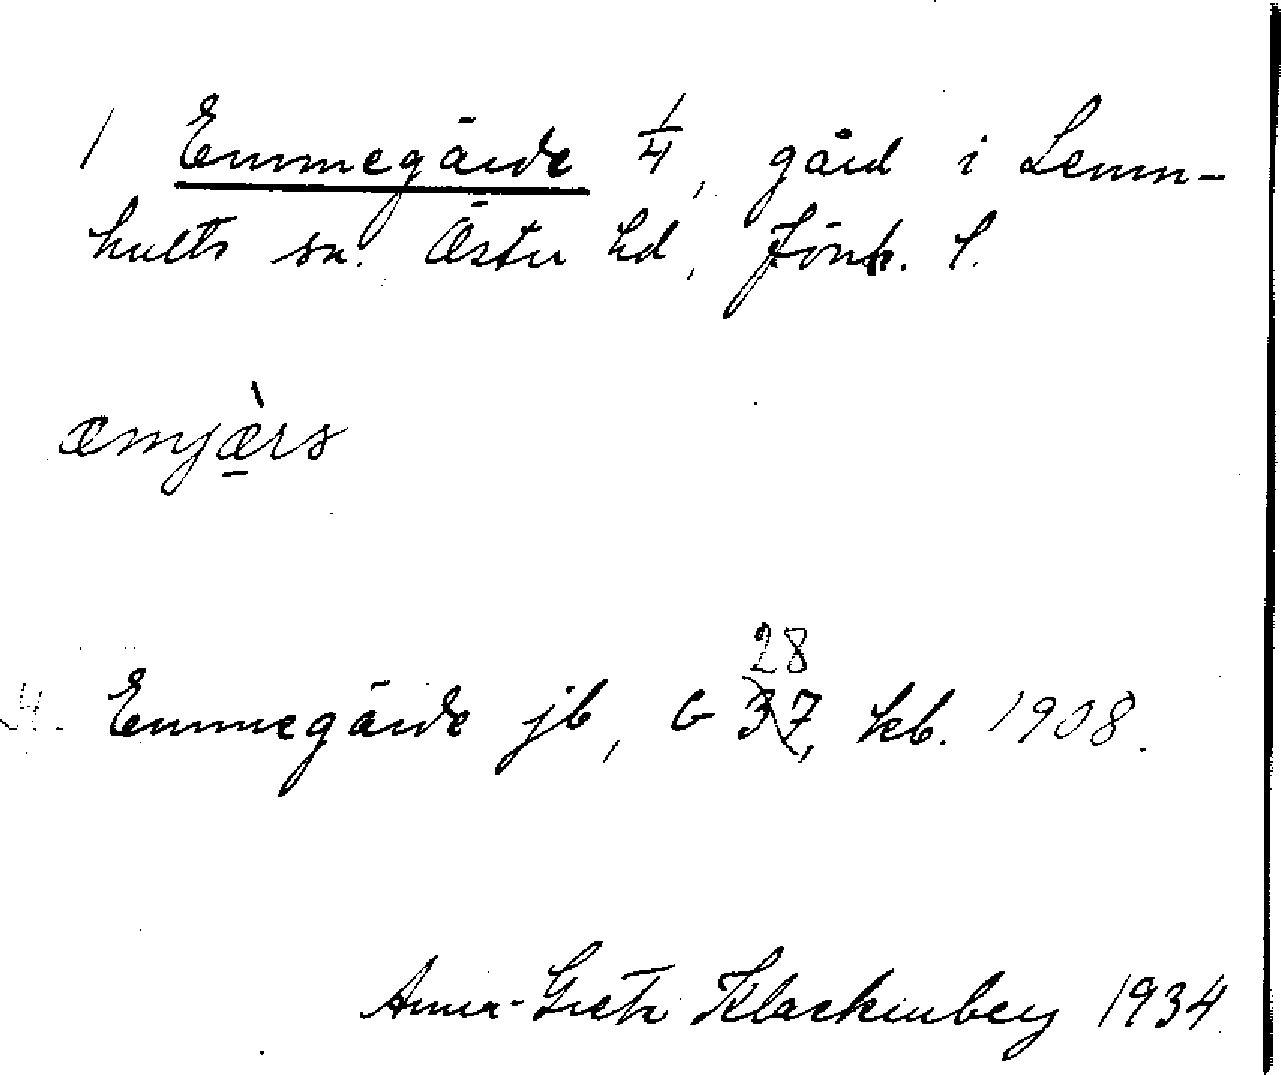 1 Emmegärde 1/4, gård i Lemn-
hults sn. Östra hd, Jönk. l.
æmjæ̠̀rs
28
Emmegärde jb, G 37, kb. 1908.
Anna-Greta Klackenberg 1934